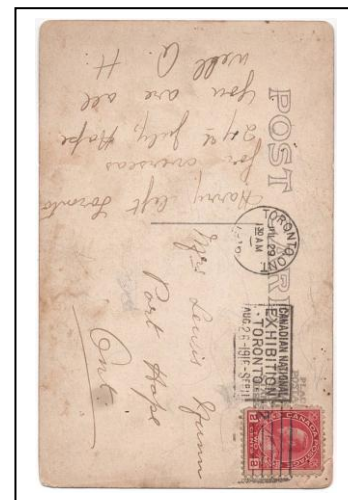 POST CARD
Harry left Toronto
for overseas
24th July, Hope
you are all
well A. H.
TORONTO
JUL 29
130 AM
ONT.
CANADIAN NATIONAL
EXHIBITION
TORONTO
AUG 26-1916-SEP 11
CANADA POSTAGE
2 TWO 2
Mrs Lewis
Port Hope
Ont.